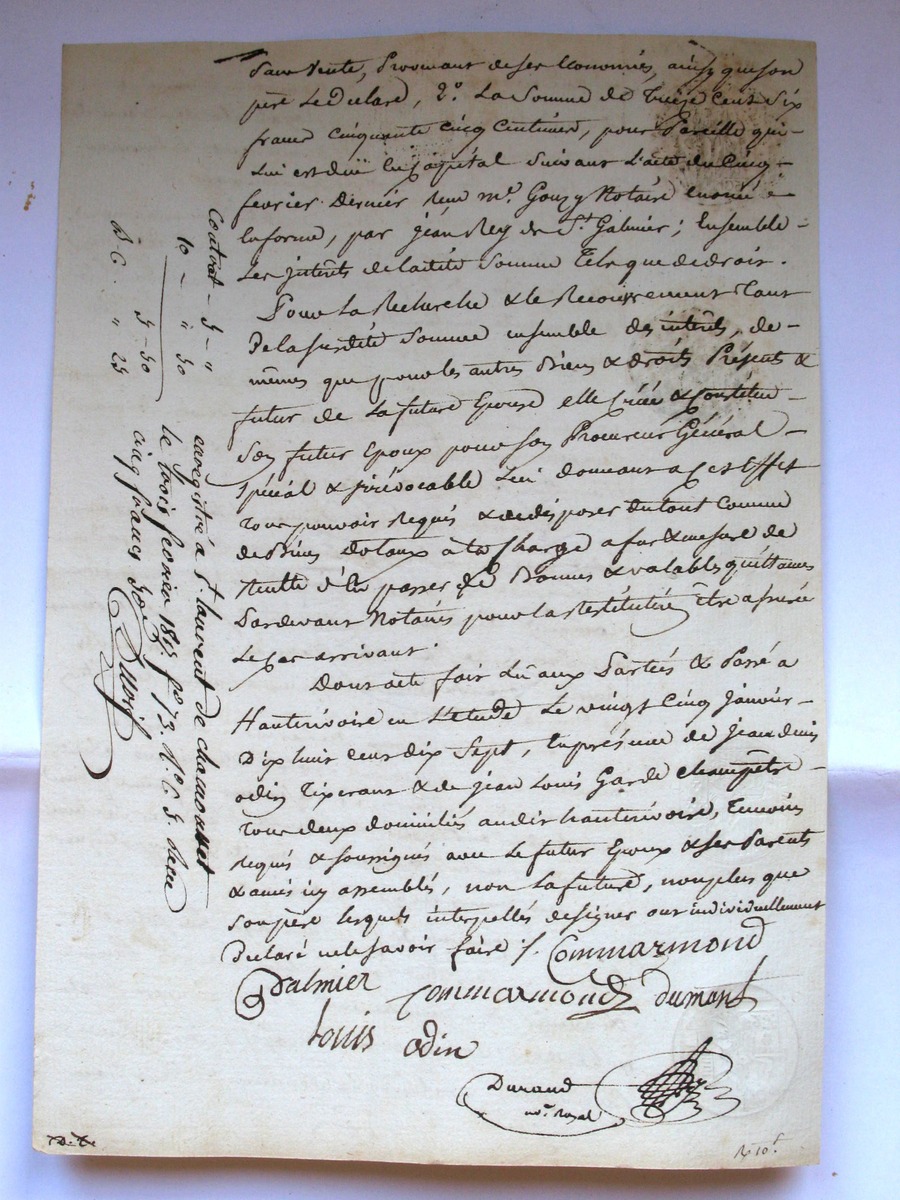 Sauv Vente, Provenant de ses Economies, ainsy que son
père Le Déclare, 2°. La Somme de Treize Cent Six
francs cinquante cinq Centimes, pour Pareille qui
Lui est düe en Capital Suivant L'acte du Cinq
fevrier Dernier reçu me. Gouzy Notaire
en forme, par jean Rey de St. Galmier; Ensemble
Les interêts de ladite Somme Tels que de droit.
Pour La Recherche & le Recouvrement Tant
De la susdite Somme ensemble des interêts, de
mêmes que pour les autres Biens & droits Présents &
futur de La future Epouse elle Créée & Constitue
Son futur Epoux pour Son Procureur Général
Spécial & irrévocable Lui donnant a Cet Effet
Tous pouvoir Requis & de disposer du tout Comme
de Biens Dotaux à la Charge a fur & mesure de
Recette d'en passer de Bonnes & valables quittances
Pardevant Notaires pour la Restitution être assurée
Le Cas arrivant.
Dont acte fait Lu aux Parties & Passé a
Hauterivoire en L'etude Le vingt Cinq Janvier
Dix huit cent dix Sept, En présence de Jean denis
odin Tixerant & de jean Louis Garde champêtre
Tous deux domiciliés audit hauterivoire, Temoins
Requis & soussignés avec Le futur Epoux & ses Parents
& amis icy assemblés, non La future, non plus que
Son père lesquels interpellés de signer ont individuellement
Déclaré ne le savoir faire /. Commarmond
Dalmier Commarmond Dumont
Louis odin
Durand
nore. Royal
Contrat - 5 - "
10 - " 50
5 - 50
D. C. " 25
enregistré a St. laurent de chamousset
le trois fevrier 1817 fo 73. Ro. C. 5. Reçu
cinq francs
R 10f